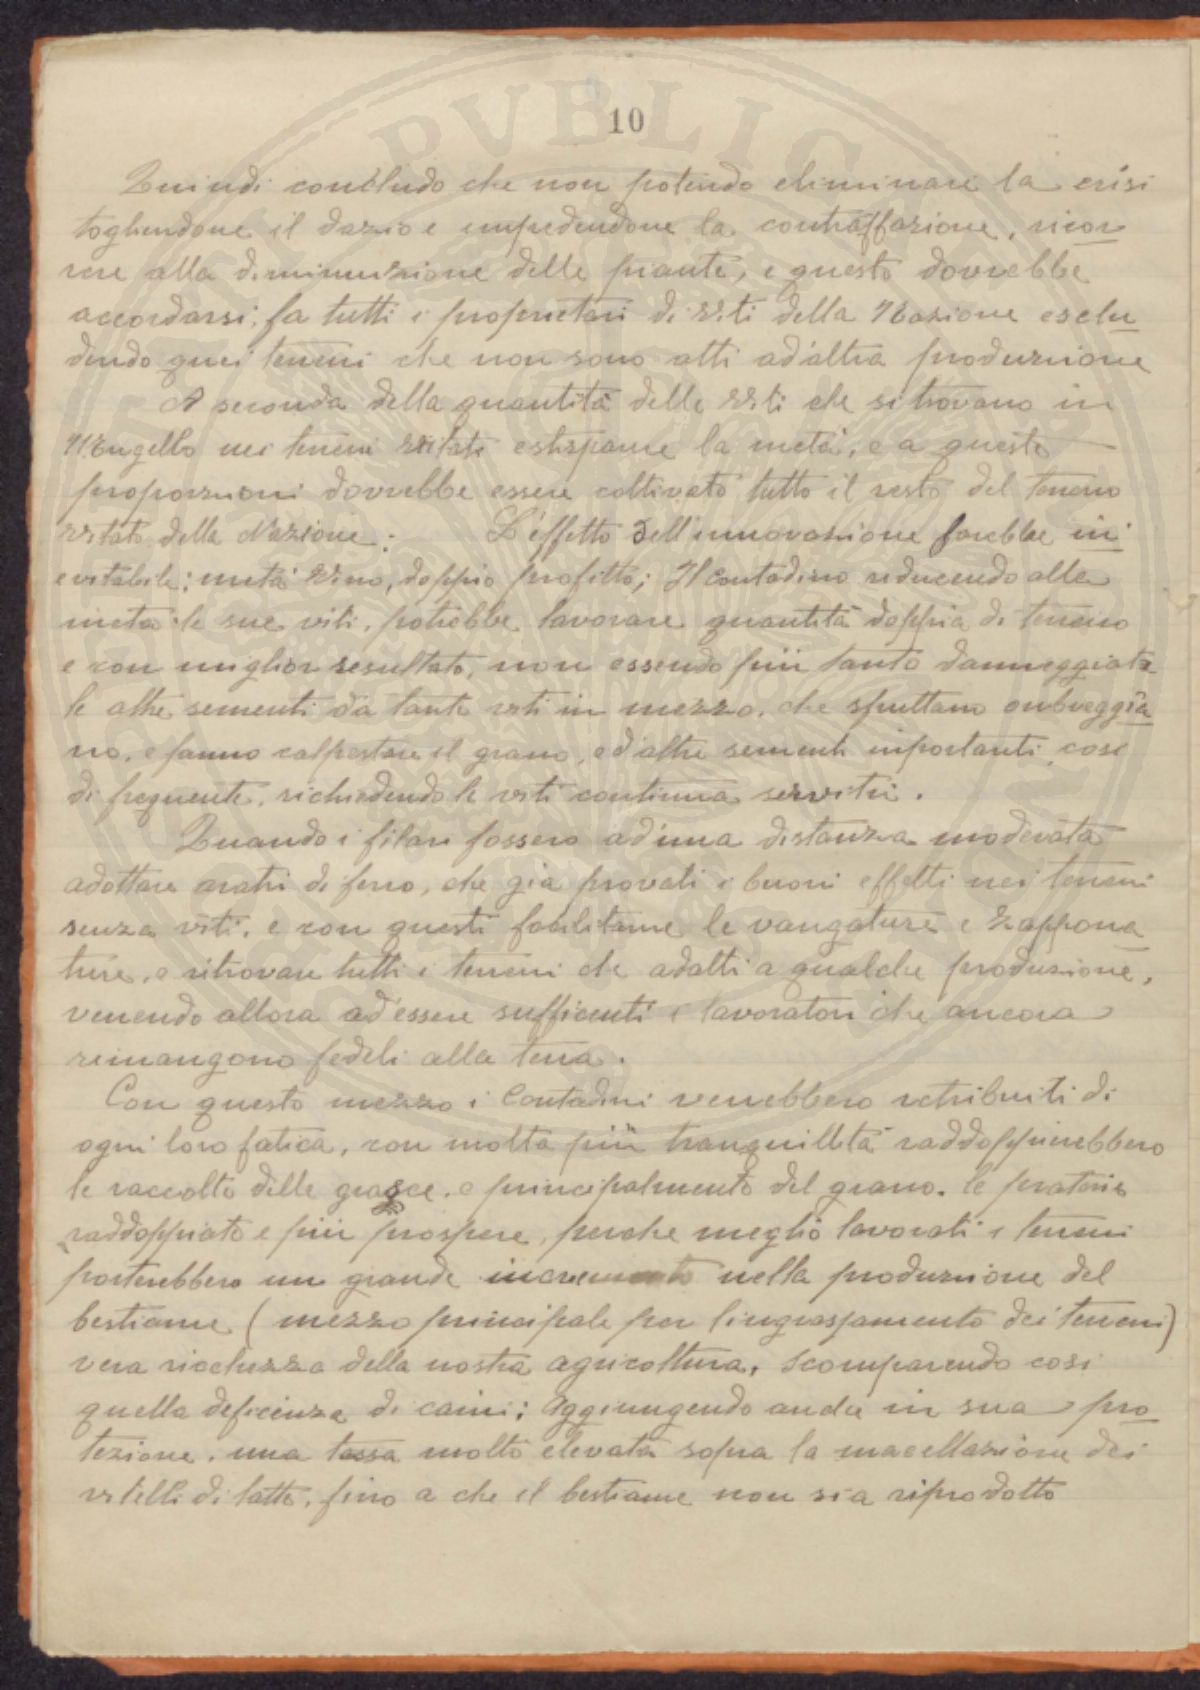 10
Quindi concludo che non potendo eliminare la crisi
togliendone il dazio e impedendone la contraffazione, ricor
rere alla diminuzione delle piante, e questo dovrebbe
accordarsi, fa tutti i proprietari di viti della Nazione esclu
dendo quei terreni che non sono atti ad altra produzione
A seconda della quantità delle viti che si trovano in
Mugello nei terreni vitati estirparne la metà, e a queste
proporzioni dovrebbe essere coltivato tutto il resto del terreno
vitato della Nazione. L'effetto dell'innovazione sarebbe in
evitabile; metà vino, doppio profitto; Il contadino reducendo alla
metà le sue viti, potrebbe lavorare quantità doppia di terreno
e con miglior resultato, non essendo più tanto danneggiata
le altre sementi da tante viti in mezzo, che sfruttano ombreggia
no, e fanno calpestare il grano, ed altre sementi importanti, così
di frequente, richiedendo le viti continua servitù.
Quando i filari fossero ad una distanza moderata
adottare aratri di ferro, che già provati i buoni effetti nei terreni
senza viti, e con questi facilitarne le vangature e zappona
ture, e ritrovare tutti i terreni che adatti a qualche produzione,
venendo allora ad essere sufficenti i lavoratori che ancora
rimangono fedeli alla terra.
Con questo mezzo i Contadini verrebbero retribuiti di
ogni loro fatica, con molta più tranquillità raddoppierebbero
le raccolte delle grasce, e principalmente del grano. le praterie
raddoppiate e più prospere, perche meglio lavorati i terreni
porterebbero un grande incremento nella produzione del
bestiame (mezzo principale per l'ingrassamento dei terreni)
vera ricchezza della nostra agricoltura, scomparendo così
quella deficienza di carni; Aggiungendo anche in sua pro
tezione, una tassa molto elevata sopra la macellazione dei
vitelli di latte, fino a che il bestiame non sia riprodotto